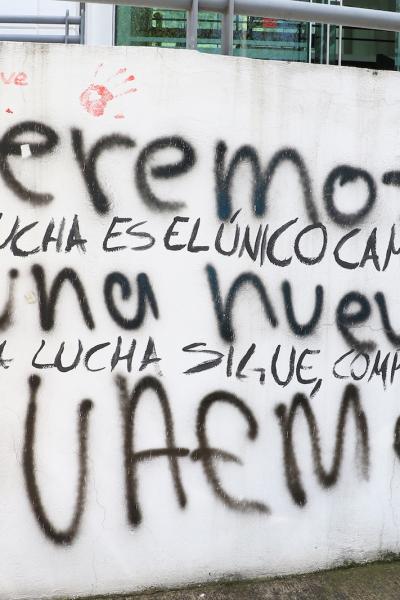 ve
eremos
UCHA ES EL ÚNICO CAM
una nuev
A LUCHA SIGUE, COMP
UAEM